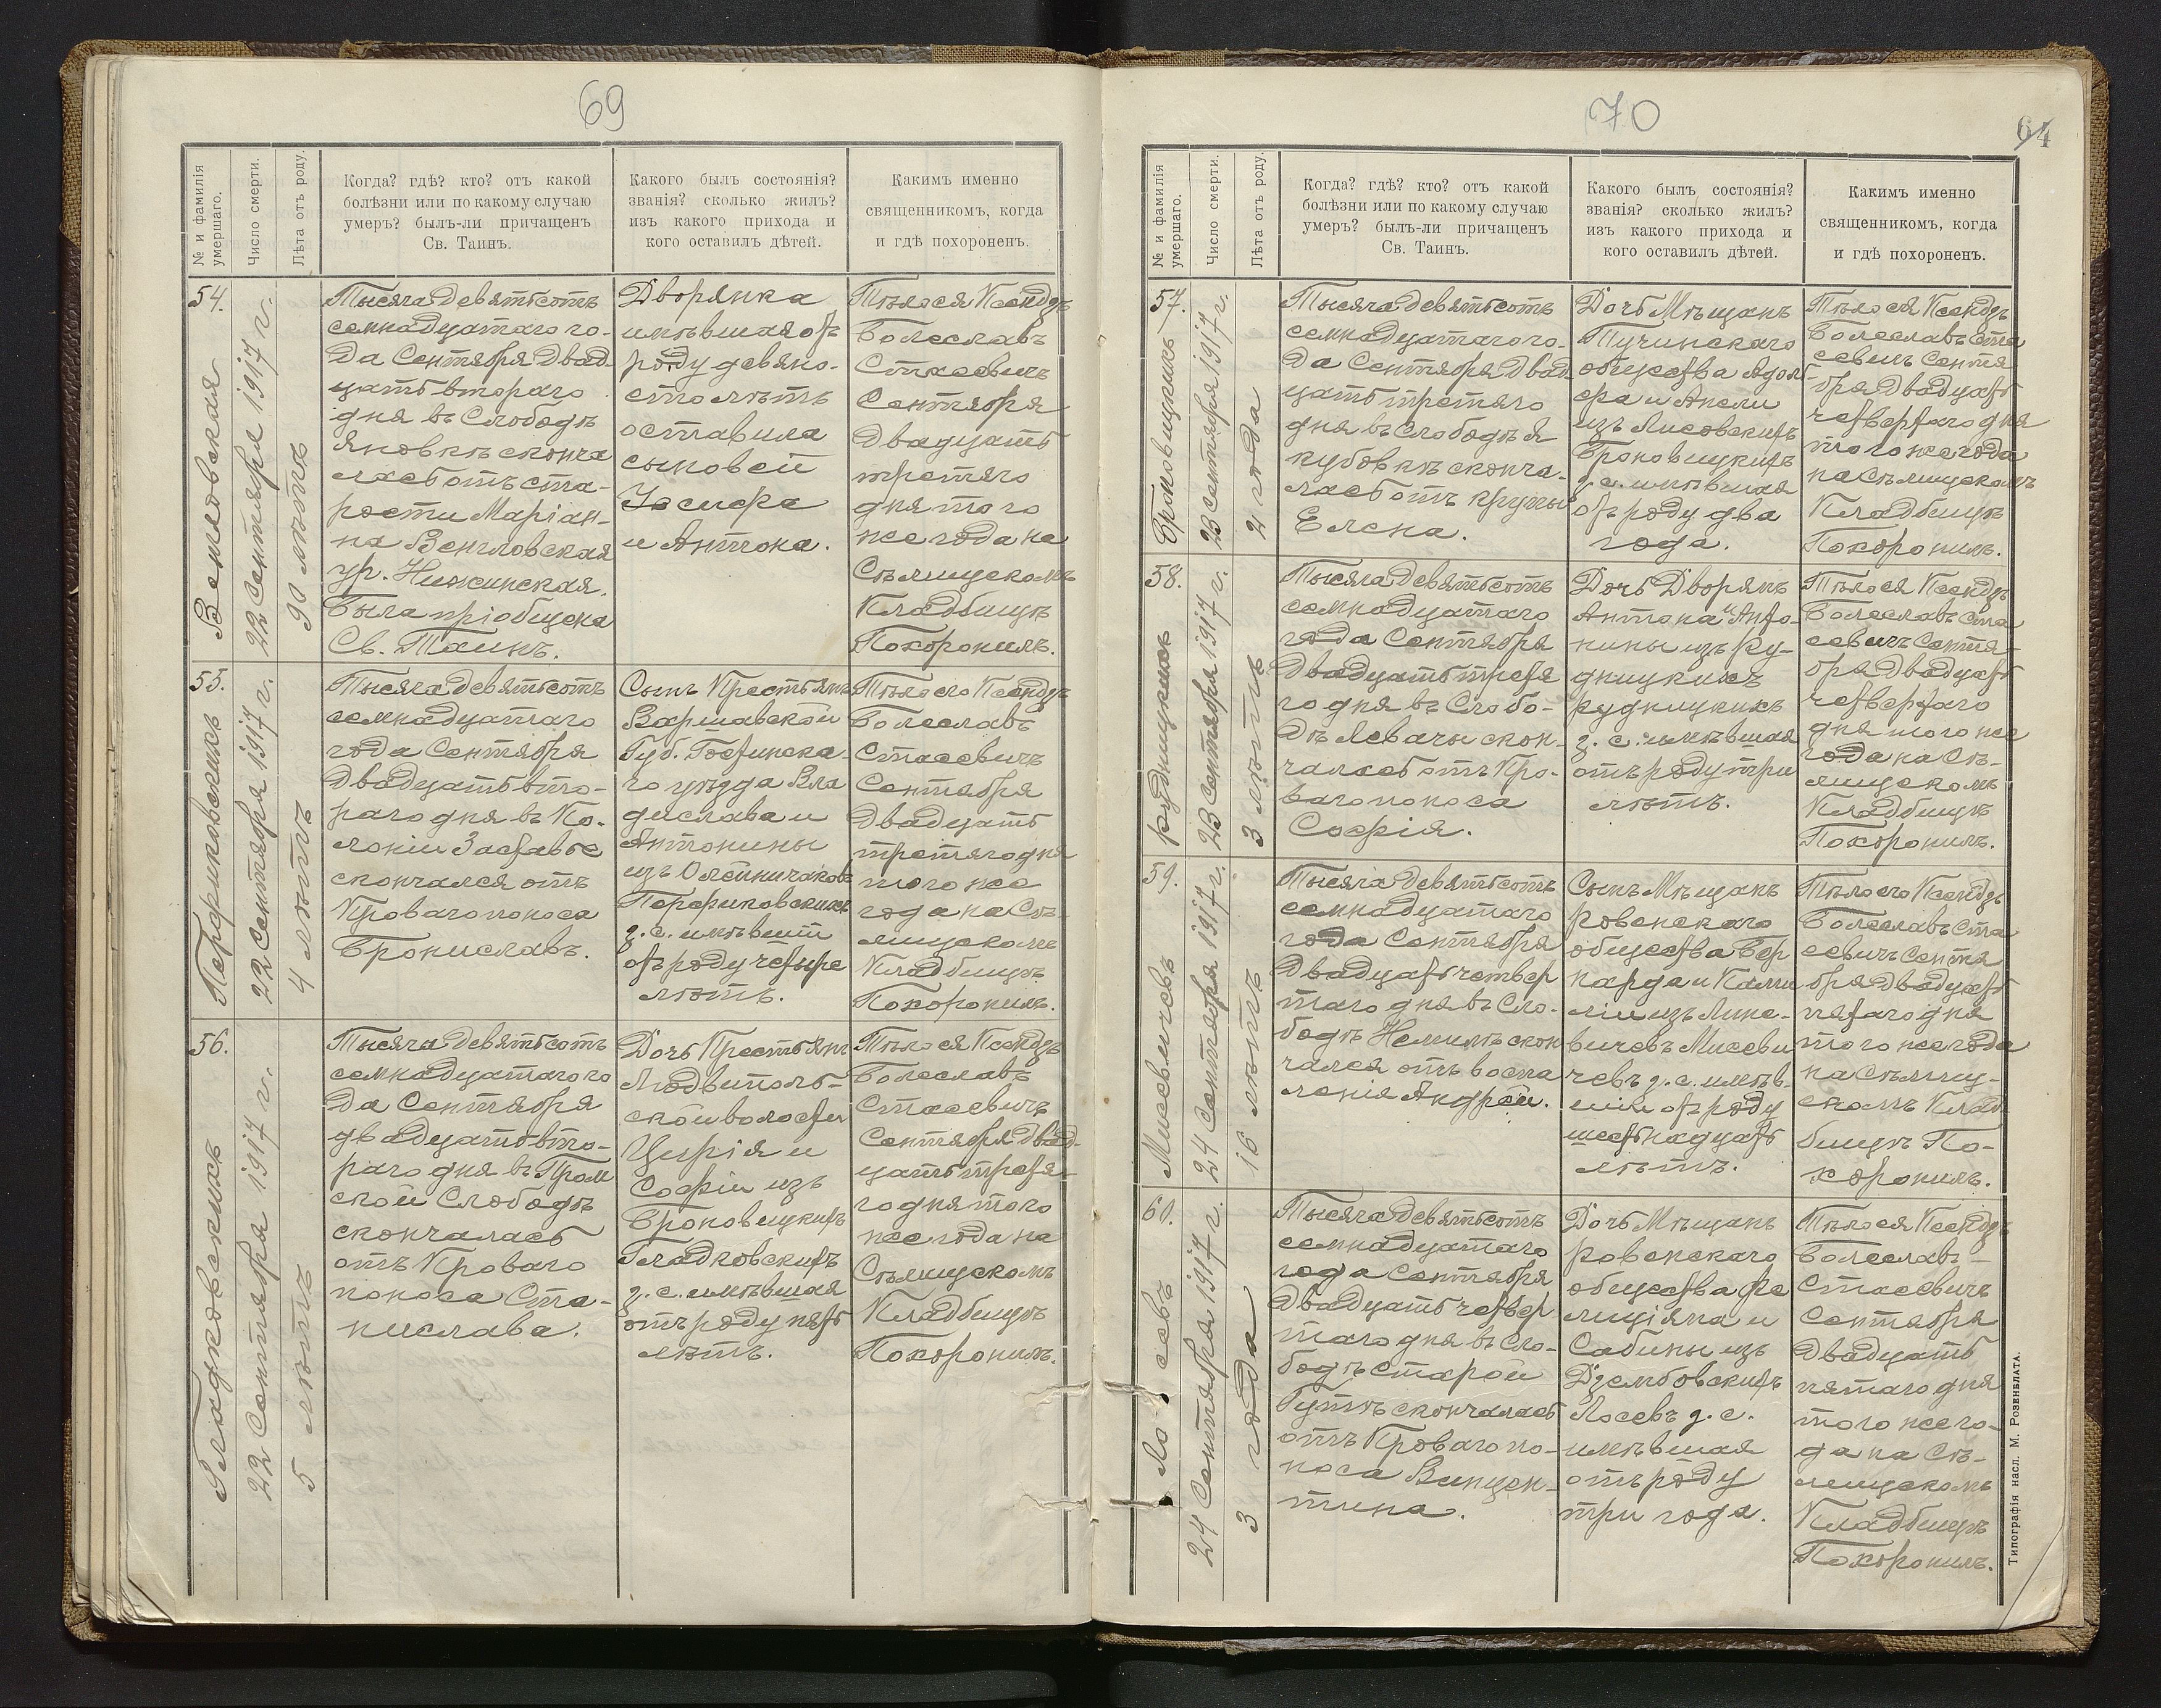 69
№ и фамилія умершаго.
Число смерти.
Лѣта отъ роду.
Когда? гдѣ? кто? отъ какой
болѣзни или по какому случаю
умеръ? былъ-ли причащенъ
Св. Таинъ.
Какого былъ состоянія?
званія? сколько жилъ?
изъ какого прихода и
кого оставилъ дѣтей.
Какимъ именно
священникомъ, когда
и гдѣ похороненъ.
54.
Венгловская
22 Сентября 1917 г.
90 лѣтъ
Тысяча девятьсотъ
семнадцатаго го-
да Сентября двад-
цать втораго
дня въ Слободѣ
Яновкѣ сконча
лась отъ ста-
рости Маріан-
на Венгловская
ур. Нижинская.
Была пріобщена
Св. Таинъ.
Дворянка
имѣвшая отъ
роду девяно-
сто лѣтъ
оставила
сыновей
Іосифа
и Антона.
Тѣло ея Ксендзъ
Болеславъ
Стасевичъ
Сентября
двадцать
третяго
дня того
же года на
Сѣлищскомъ
Кладбищѣ
Похоронилъ.
55.
Перфиковскихъ
22 Сентября 1917 г.
4 лѣтъ
Тысяча девятьсотъ
семнадцатаго
года Сентября
двадцать вто-
раго дня въ Ко-
лоніи Заставье
скончался отъ
Кроваго поноса
Брониславъ.
Сынъ Крестьянъ
Варшавской
Губ. Гостинска-
го уѣзда Вла
дислава и
Антонины
изъ Олейничаковъ
Перфиковскихъ
з. с. имѣвший
отъ роду четыре
лѣтъ.
Тѣло его Ксендзъ
Болеславъ
Стасевичъ
Сентября
двадцать
третяго дня
того же
года на Сѣ-
лищскомъ
Кладбищѣ
Похоронилъ.
56.
Гладковскихъ
22 Сентября 1917 г.
5 лѣтъ
Тысяча девятьсотъ
семнадцатаго го
да Сентября
двадцать вто-
раго дня въ
ской Слободѣ
скончалась
отъ Кроваго
поноса Ста-
нислава.
Дочь Крестьянъ
Людвиполь-
ской волости
Цирія и
Софіи изъ
Броновицкихъ
Гладковскихъ
з. с. имѣвшая
отъ роду пять
лѣтъ.
Тѣло ея Ксендзъ
Болеславъ
Стасевичъ
Сентября двад-
цать третя-
го дня того
же года на
Сѣлищскомъ
Кладбищѣ
Похоронилъ.
70
64
№ и фамилія умершаго.
Число смерти.
Лѣта отъ роду.
Когда? гдѣ? кто? отъ какой
болѣзни или по какому случаю
умеръ? былъ-ли причащенъ
Св. Таинъ.
Какого былъ состоянія?
званія? сколько жилъ?
изъ какого прихода и
кого оставилъ дѣтей.
Какимъ именно
священникомъ, когда
и гдѣ похороненъ.
57.
23 Сентября 1917 г.
2 года
Тысяча девятьсотъ
семнадцатаго го-
да Сентября двад-
цать третяго
дня въ слободѣ Я
кубовкѣ сконча-
лась отъ крупы
Елена.
Дочь Мѣщанъ
Тучинскаго
общества Адоль-
фа и Анели
изъ Лисовскихъ
Броновицкихъ
з. с. имѣвшая
отъ роду два
года.
Тѣло ея Ксендзъ
Болеславъ Ста
севичъ Сентя
бря двадцать
четвертаго дня
того же года
на Сѣлищскомъ
Кладбищѣ
Похоронилъ.
58.
Рудницкихъ
23 Сентября 1917 г.
3 лѣтъ
Тысяча девятьсотъ
семнадцатаго
года Сентября
двадцать третя
го дня въ Слобо-
дѣ Левачы скон-
чалась отъ Кро-
ваго поноса
Софія.
Дочь Дворянъ
Антона и Анто-
нины изъ Ру-
дницкихъ
Рудницкихъ
з. с. имѣвшая
отъ роду три
лѣтъ.
Тѣло ея Ксендзъ
Болеславъ Ста
севичъ Сентя-
бря двадцать
четвертаго
дня того же
года на Сѣ-
лищскомъ
Кладбищѣ
Похоронилъ.
59.
Мисевичевъ
24 Сентября 1917 г.
16 лѣтъ
Тысяча девятьсотъ
семнадцатаго
года Сентября
двадцать четвер
таго дня въ Сло-
бодѣ Немилѣ скон
чался отъ воспа
ленія Андрей.
Сынъ Мѣщанъ
Ровенскаго
общества Бер
нарда и Камил
ліи изъ Лине-
вичевъ Мисеви
чевъ з. с. имѣв-
ший отъ роду
шестьнадцать
лѣтъ.
Тѣло его Ксендзъ
Болеславъ Ста
севичъ Сентя
бря двадцать
пятаго дня
того же года
на Сѣлищ-
скомъ Клад-
бищѣ По-
хоронилъ.
60.
Лосевъ
24 Сентября 1917 г.
3 года
Тысяча девятьсотъ
семнадцатаго
года Сентября
двадцать четвер
таго дня въ Сло-
бодѣ Старой
Гутѣ скончалась
отъ Кроваго по-
носа Винцен-
тина.
Дочь Мѣщанъ
Ровенскаго
общества Фе
лиціяна и
Сабины изъ
Дзембовскихъ
Лосевъ з. с.
имѣвшая
отъ роду
три года.
Тѣло ея Ксендзъ
Болеславъ
Стасевичъ
Сентября
двадцать
пятаго дня
того же го-
да на Сѣ-
лищскомъ
Кладбищѣ
Похоронилъ.
Типографія насл. М. Розенблата.